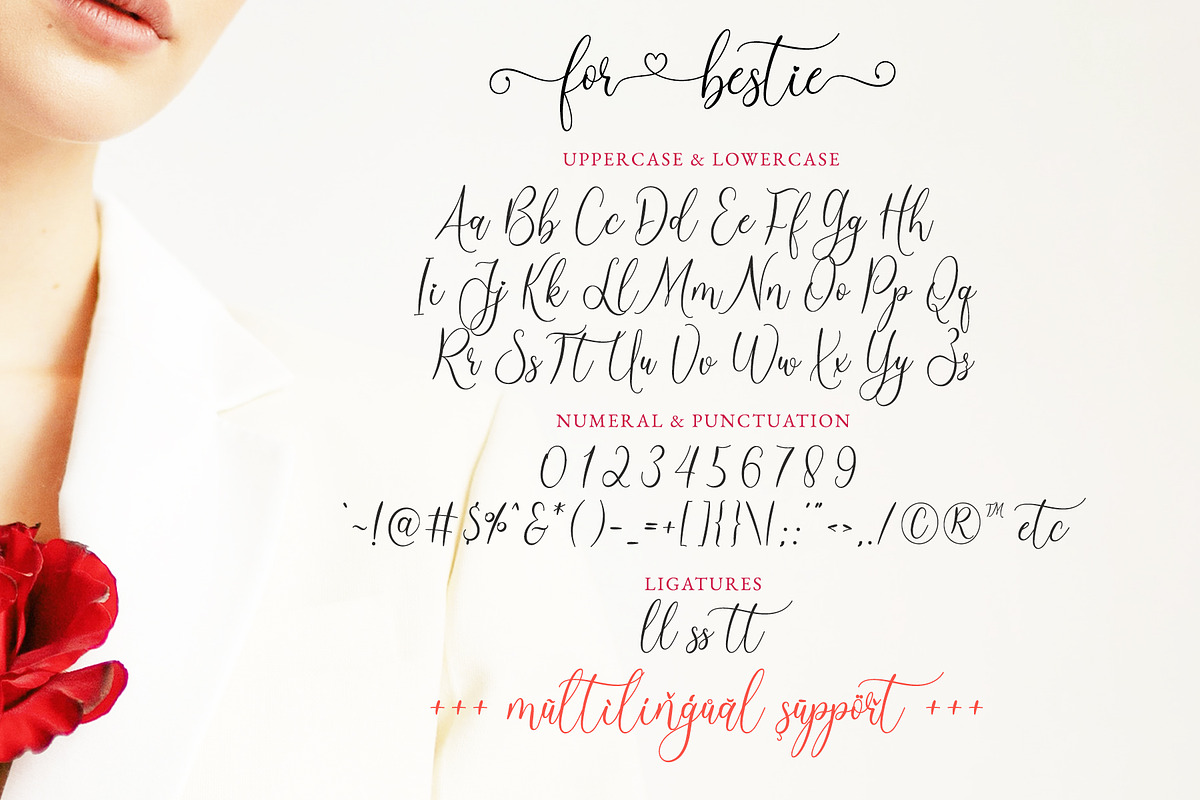 for bestie
UPPERCASE & LOWERCASE
Aa Bb Cc Dd Ee Ff Gg Hh
Ii Jj Kk Ll Mm Nn Oo Pp Qq
Rr Ss Tt Uu Vv Ww Xx Yy Zz
NUMERAL & PUNCTUATION
0123456789
`~!@#$%^&*()-_=+[]{}\|;:'"<>,./©®™ etc
LIGATURES
ll ss tt
+++ mũltìlíňģůăl şūppöřt +++